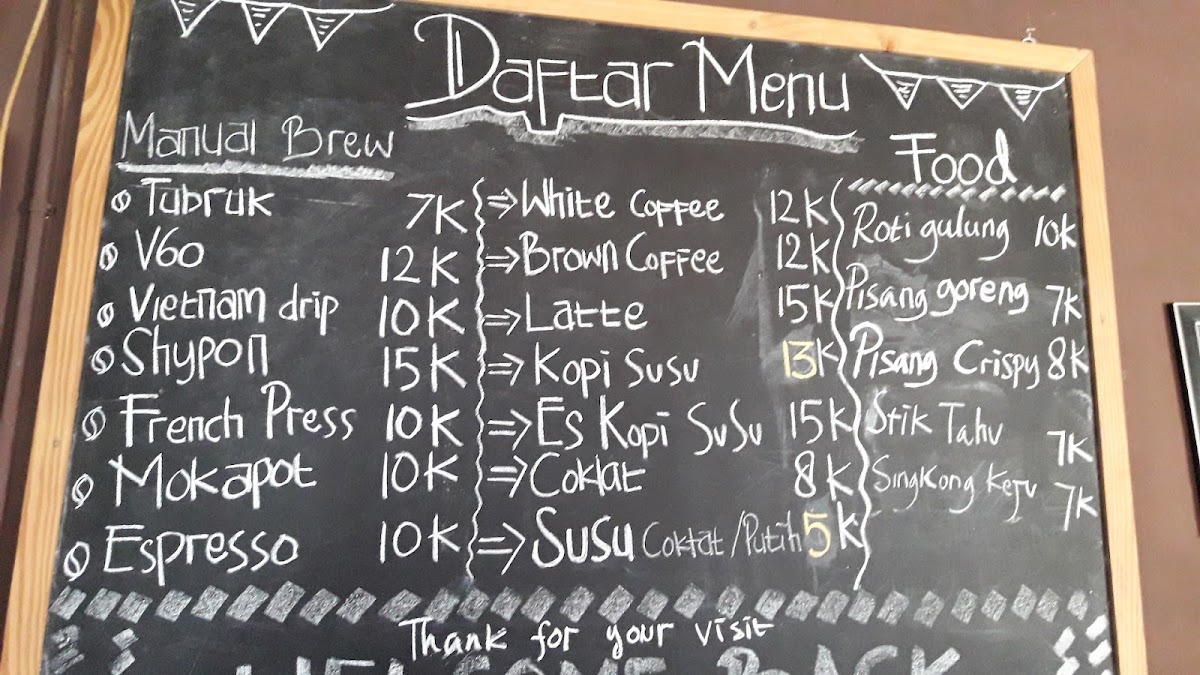 Daftar Menu
Manual Brew
Tubruk 7K
V60 12K
Vietnam drip 10K
Shypon 15K
French Press 10K
Mokapot 10K
Espresso 10K
⇒ White Coffee 12K
⇒ Brown Coffee 12K
⇒ Latte 15K
⇒ Kopi Susu 13K
⇒ Es Kopi SuSu 15K
⇒ Coklat 8K
⇒ Susu Coklat / Putih 5K
Food
Roti gulung 10K
Pisang goreng 7K
Pisang Crispy 8K
Stik Tahu 7K
Singkong Keju 7K
Thank for your visit
WELCOME BACK